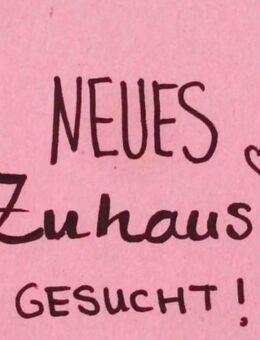 NEUES
Zuhaus
GESUCHT!